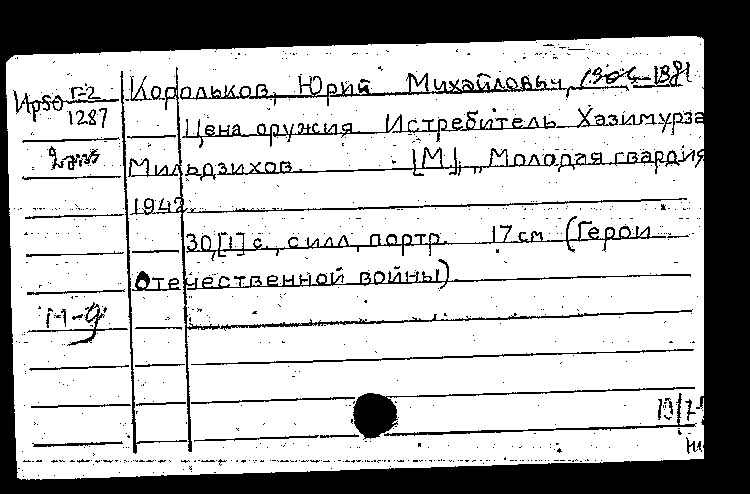 Корольков, Юрий Михайлович,
Ир50 Г-2
1287
Цена оружия Истребитель Хазимурза
Мильдзихов. [М], „Молодая гвардия
1942.
30,[1] с., с илл., портр. 17 см (Герои
Отечественной войны)
М-д